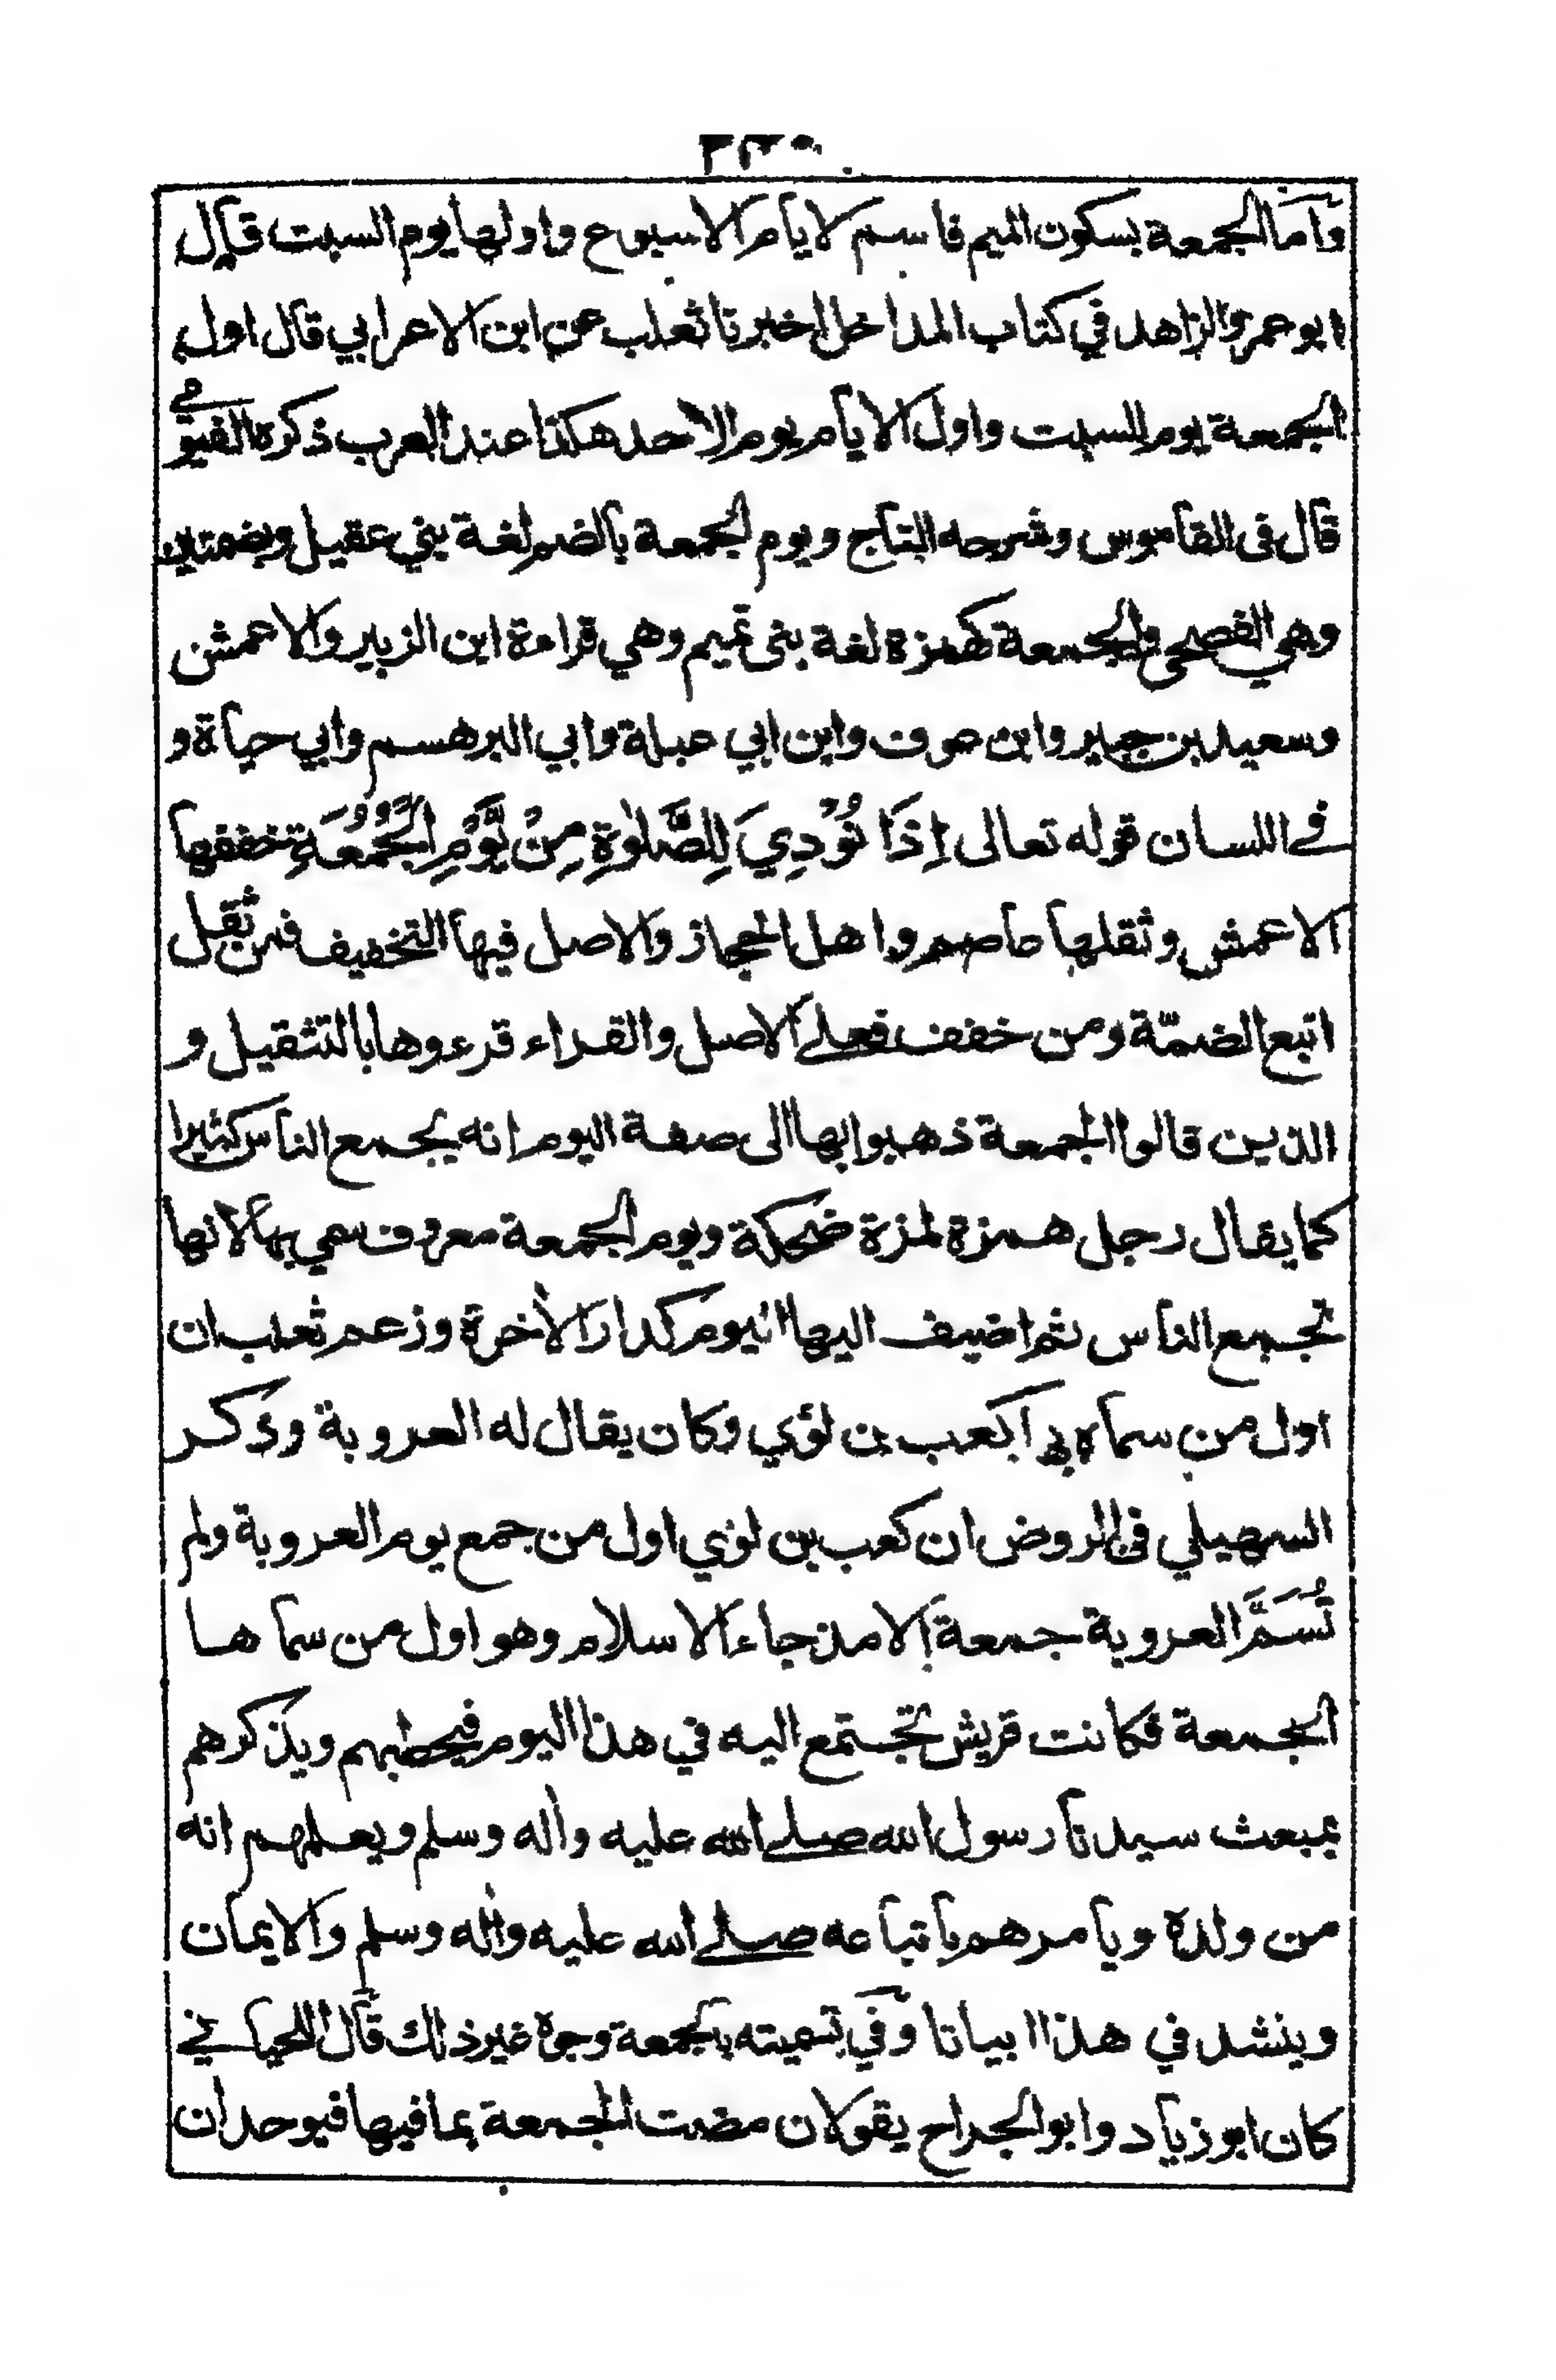 واما الجمعة بسكون الميم فاسم لايام الاسبوع واولها يوم السبت قال
ابو عمرو الزاهد في كتاب المداخل اخبرنا ثعلب عن ابن الاعرابي قال اول
الجمعة يوم السبت واول الايام يوم الاحد هكذا عند العرب ذكره الفيومي
قال في القاموس وشرحه التاج ويوم الجمعة بالضم لغة بني عقيل وبضمتين
وهي الفصحى والجمعة كهمزة لغة بنى تميم وهي قراءة ابن الزبير والاعمش
وسعيد بن جبير وابن عوف وابن ابي عبلة وابي البرهسم وابي حياة و
في اللسان قوله تعالى إِذَا نُوْدِيَ لِلصَّلٰوةِ مِنْ يَّوْمِ الْجُمُعَةِ خففها
الاعمش وثقلها عاصم واهل الحجاز والاصل فيها التخفيف فمن ثقل
اتبع الضمّة ومن خفف فعلى الاصل والقراء قرءوها بالتثقيل و
الذين قالوا الجمعة ذهبوا بها الى صفة اليوم انه يجمع الناس كثيرا
كما يقال رجل همزة لمزة ضحكة ويوم الجمعة معروف سمي بها لانها
تجمع الناس ثم اضيف اليها اليوم كدار الأخرة وزعم ثعلب ان
اول من سماه بها كعب بن لؤي وكان يقال له العروبة وذكر
السهيلي في الروض ان كعب بن لؤي اول من جمع يوم العروبة ولم
تُسَمَّ العروبة جمعة إلا مذ جاء الاسلام وهو اول من سما ها
الجمعة فكانت قريش تجتمع اليه في هذا اليوم فيخطبهم ويذكرهم
بمبعث سيدنا رسول الله صلى الله عليه وأله وسلم ويعلمهم انه
من ولده ويامرهم باتباعه صلى الله عليه وأله وسلم والايمان
وينشد في هذا ابياتا وفي تسميته بالجمعة وجوه غير ذلك قال اللحياني
كان ابو زياد وابو الجراح يقولان مضت الجمعة بما فيها فيوحدان